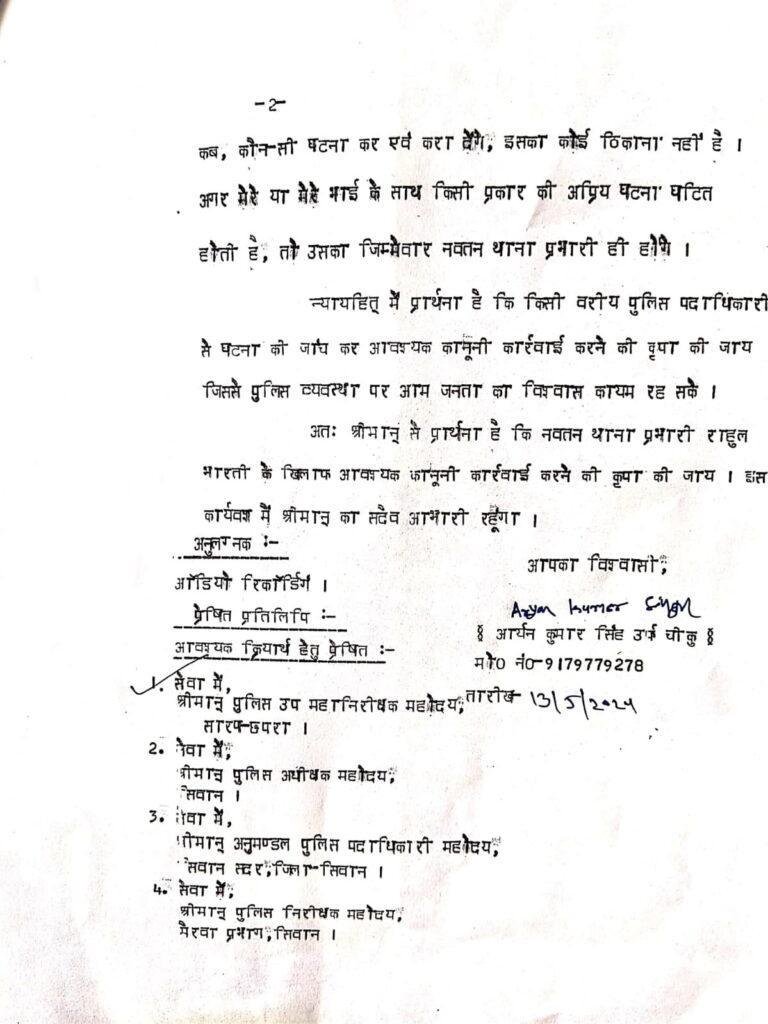 -2-
कब, कौन-सी घटना कर एवं करा देंगे, इसका कोई ठिकाना नहीं है ।
अगर मेरे या मेरे भाई के साथ किसी प्रकार की अप्रिय घटना घटित
होती है, तो उसका जिम्मेवार नवतन थाना प्रभारी ही होंगे ।
न्यायहित् में प्रार्थना है कि किसी वरीय पुलिस पदाधिकारी
से घटना की जांच कर आवश्यक कानूनी कार्रवाई करने की कृपा की जाय
जिससे पुलिस व्यवस्था पर आम जनता का विश्वास कायम रह सके ।
अतः श्रीमान् से प्रार्थना है कि नवतन थाना प्रभारी राहुल
भारती के खिलाफ आवश्यक कानूनी कार्रवाई करने की कृपा की जाय । इस
कार्यवश में श्रीमान् का सदैव आभारी रहूंगा ।
अनुलग्नक :-
आपका विश्वासी,
ऑडियो रिकॉर्डिंग ।
Aryan Kumar Singh
प्रेषित प्रतिलिपि :-
§ आर्यन कुमार सिंह उर्फ चीकु §
आवश्यक क्रियार्थ हेतु प्रेषित :-
मो0 नं0-9179779278
1. सेवा में,
श्रीमान् पुलिस उप महानिरीक्षक महोदय, तारीख- 13/5/2024
सारण-छपरा ।
2. सेवा में,
श्रीमान् पुलिस अधीक्षक महोदय,
सिवान ।
3. सेवा में,
श्रीमान् अनुमण्डल पुलिस पदाधिकारी महोदय,
सिवान सदर, जिला-सिवान ।
4. सेवा में,
श्रीमान् पुलिस निरीक्षक महोदय,
मैरवा प्रभाग, सिवान ।